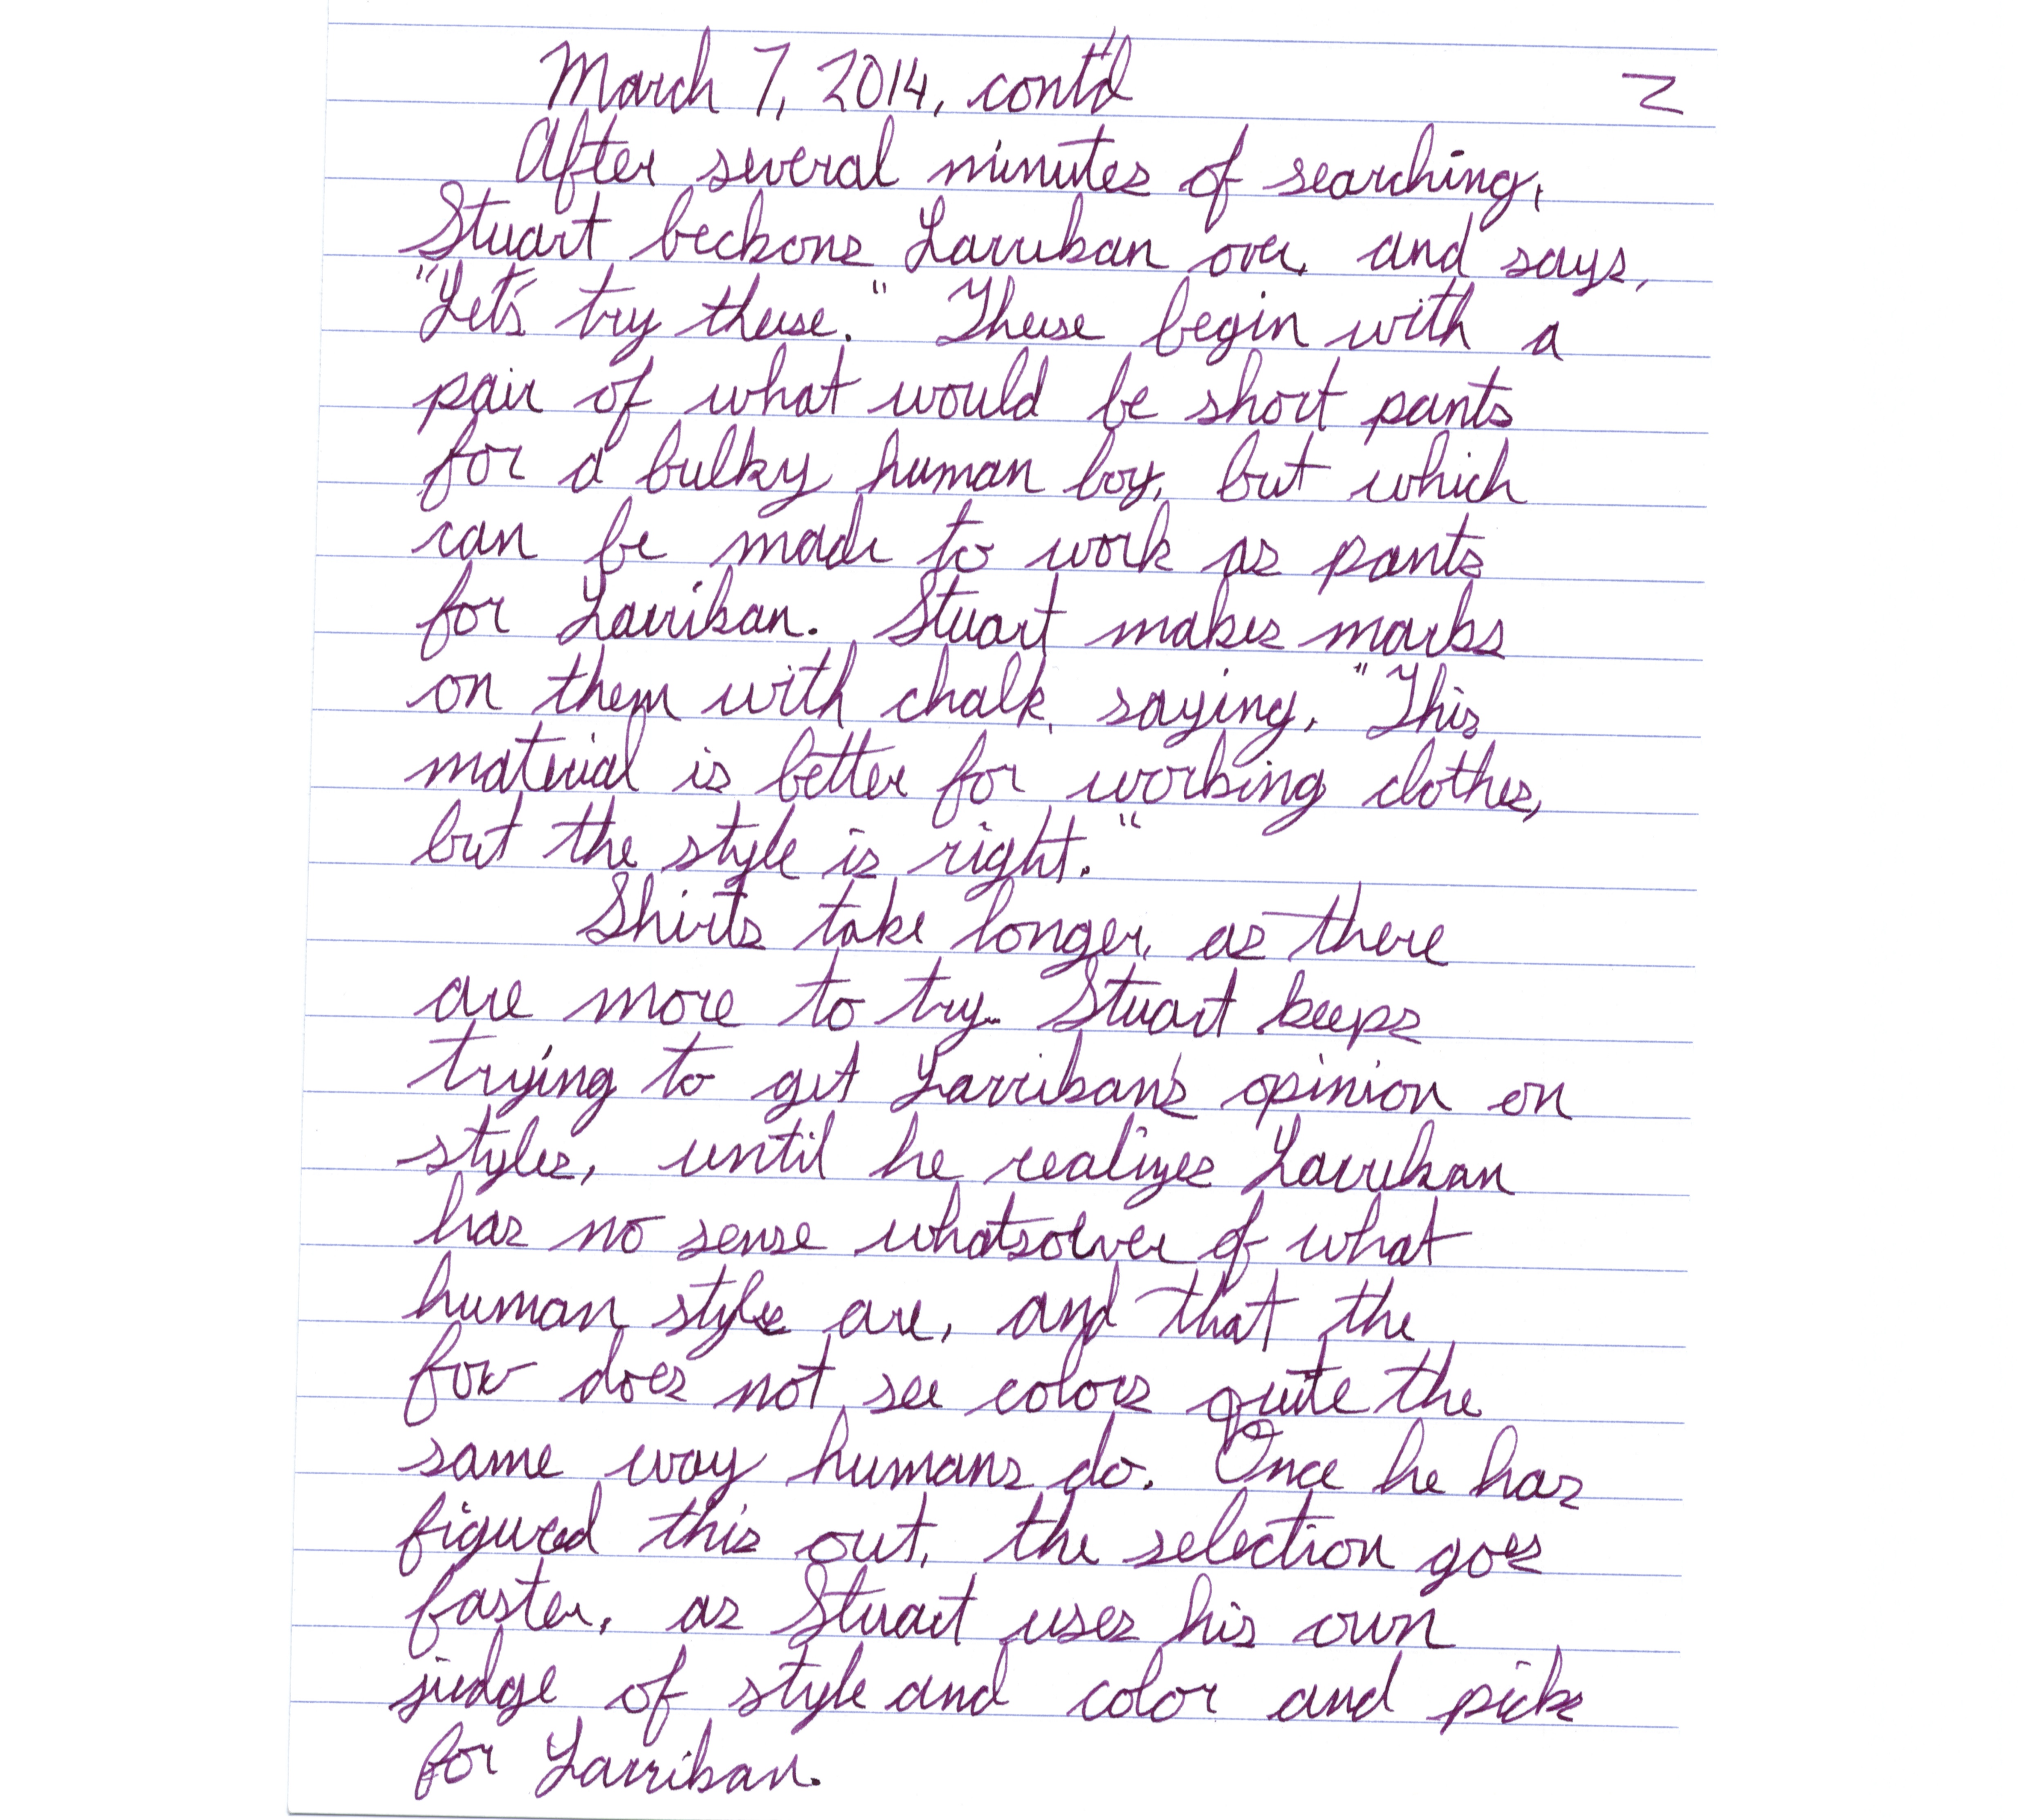 March 7, 2014, cont'd 2
After several minutes of searching,
Stuart beckons Larrikan over, and says,
"Let's try these." These begin with a
pair of what would be short pants
for a bulky human boy, but which
can be made to work as pants
for Larrikan. Stuart makes marks
on them with chalk, saying, "This
material is better for working clothes,
but the style is right."
Shirts take longer, as there
are more to try. Stuart keeps
trying to get Larrikan's opinion on
styles, until he realizes Larrikan
has no sense whatsoever of what
human styles are, and that the
fox does not see colors quite the
same way humans do. Once he has
figured this out, the selection goes
faster, as Stuart uses his own
judge of style and color and picks
for Larrikan.